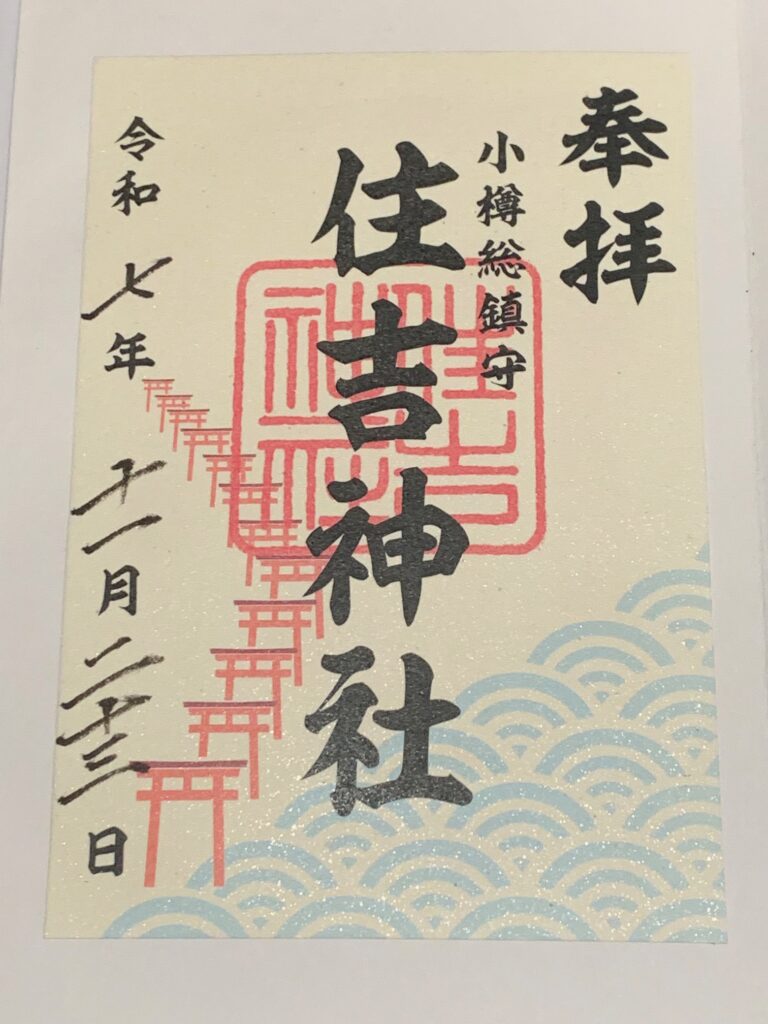 奉拝
小樽総鎮守
住吉神社
住吉神社
令和七年十一月二十三日